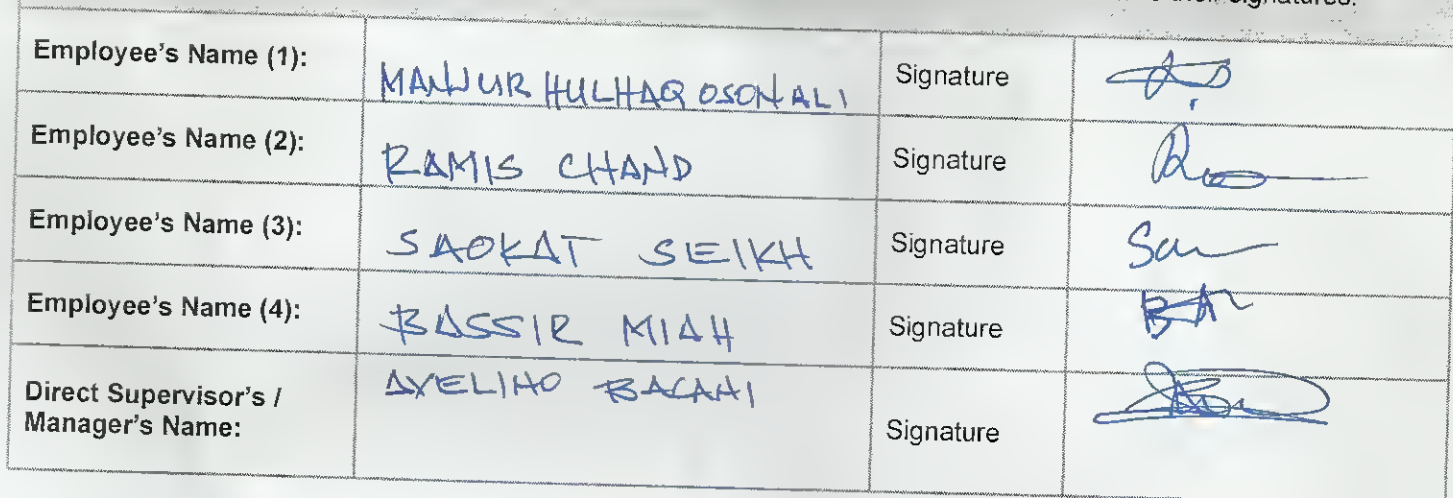 signatures.
Employee's Name (1): MANJUR HULHAQ OSONALI Signature
Employee's Name (2): RAMIS CHAND Signature
Employee's Name (3): SAOKAT SEIKH Signature
Employee's Name (4): BASSIR MIAH Signature
Direct Supervisor's / AVELINO BACANI
Manager's Name: Signature